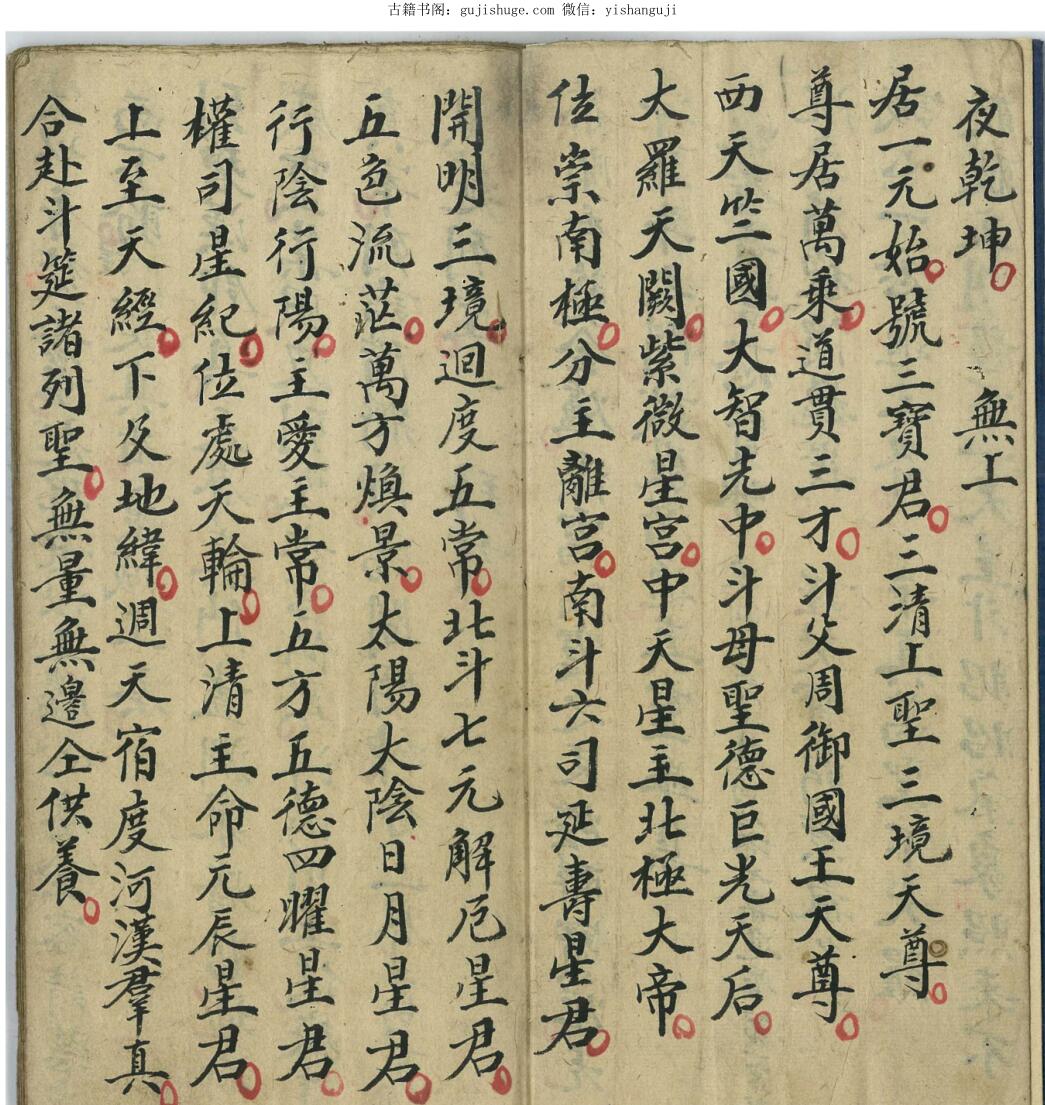 古籍书阁：gujishuge.com 微信：yishanguji
夜乾坤　無上
居一元始號三寶君三清上聖三境天尊
尊居萬乘道貫三才斗父周御國王天尊
西天竺國大智光中斗母聖德巨光天后
太羅天闕紫微星宮中天星主北極大帝
位崇南極分主離宮南斗六司延壽星君
開明三境迴度五常北斗七元解厄星君
五色流茫萬方煥景太陽太陰日月星君
行陰行陽主愛主常五方五德四曜星君
權司星紀位處天輪上清主命元辰星君
上至天經下及地緯週天宿度河漢羣真
合赴斗筵諸列聖無量無邊仝供養